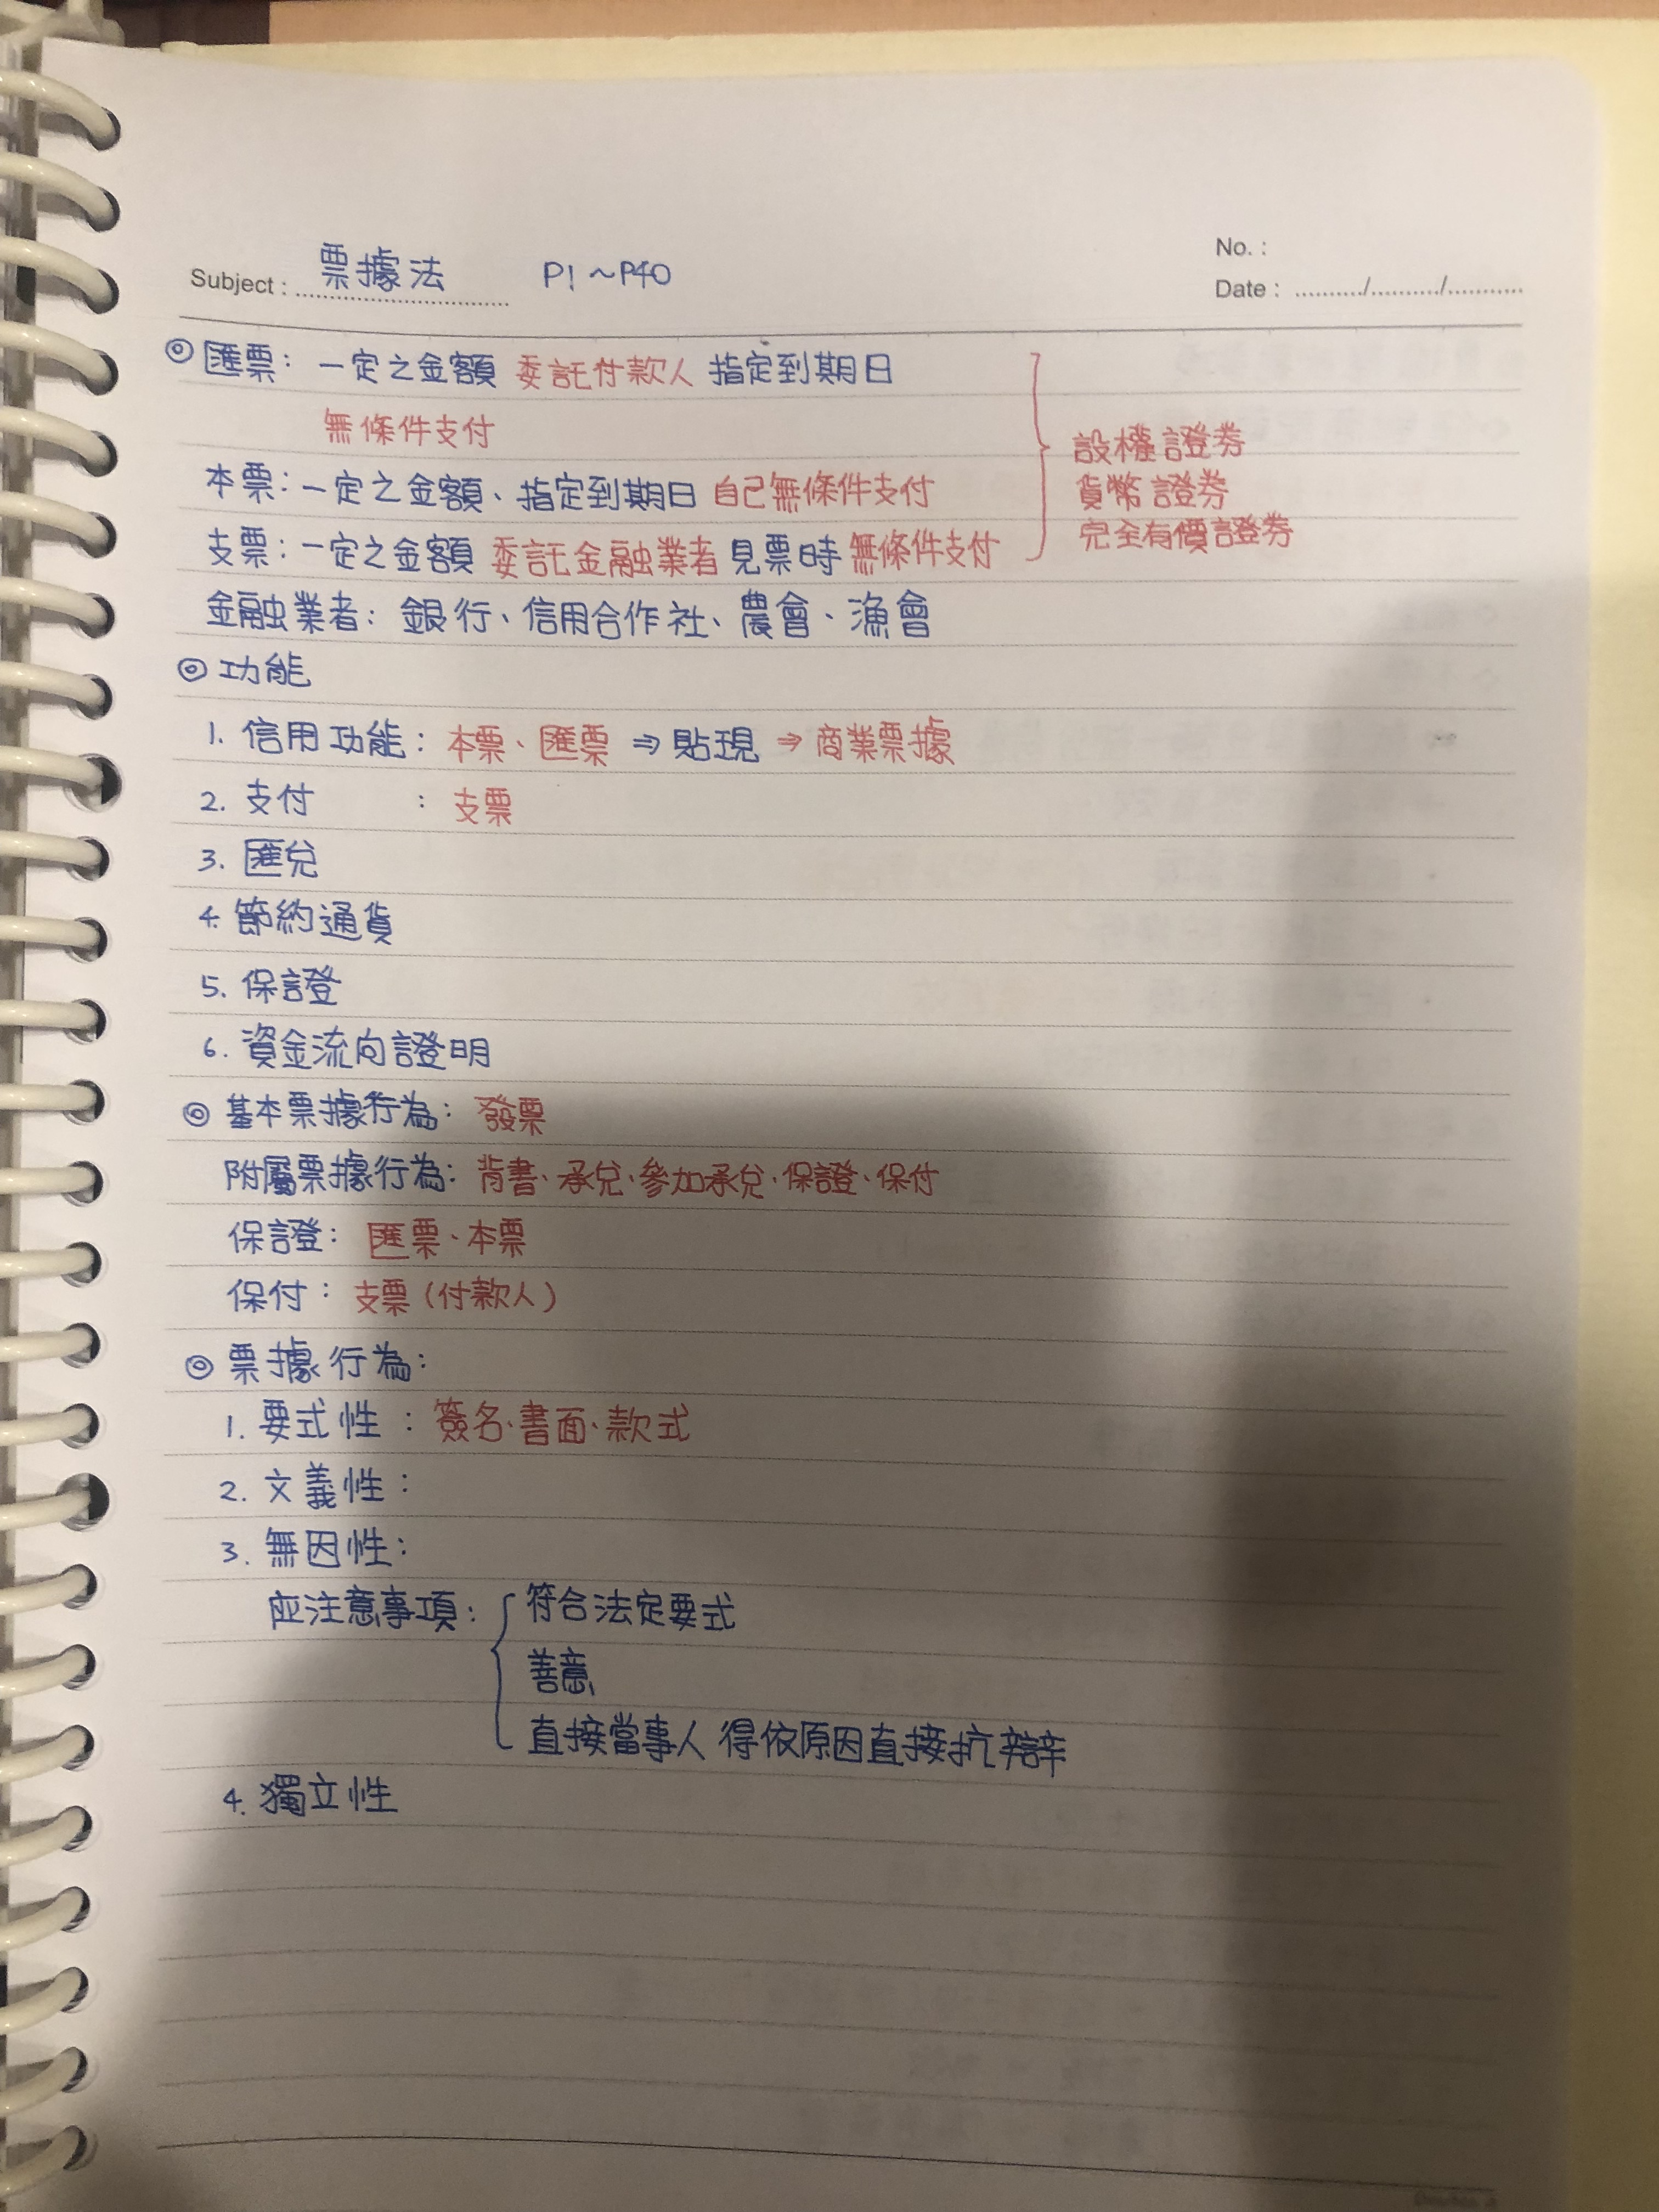 No. :
Subject : 票據法 P1~P40
Date : ........../........../...........
◎ 匯票: 一定之金額 委託付款人 指定到期日
無條件支付
設權證券
本票: 一定之金額、指定到期日 自己無條件支付
貨幣證券
完全有價證券
支票: 一定之金額 委託金融業者 見票時 無條件支付
金融業者: 銀行、信用合作社、農會、漁會
◎ 功能
1. 信用功能: 本票、匯票 ⇒ 貼現 ⇒ 商業票據
2. 支付 : 支票
3. 匯兌
4. 節約通貨
5. 保證
6. 資金流向證明
◎ 基本票據行為: 發票
附屬票據行為: 背書、承兌、參加承兌、保證、保付
保證: 匯票、本票
保付: 支票(付款人)
◎ 票據行為:
1. 要式性: 簽名、書面、款式
2. 文義性:
3. 無因性:
應注意事項: 符合法定要式
善意
直接當事人 得依原因直接抗辯
4. 獨立性